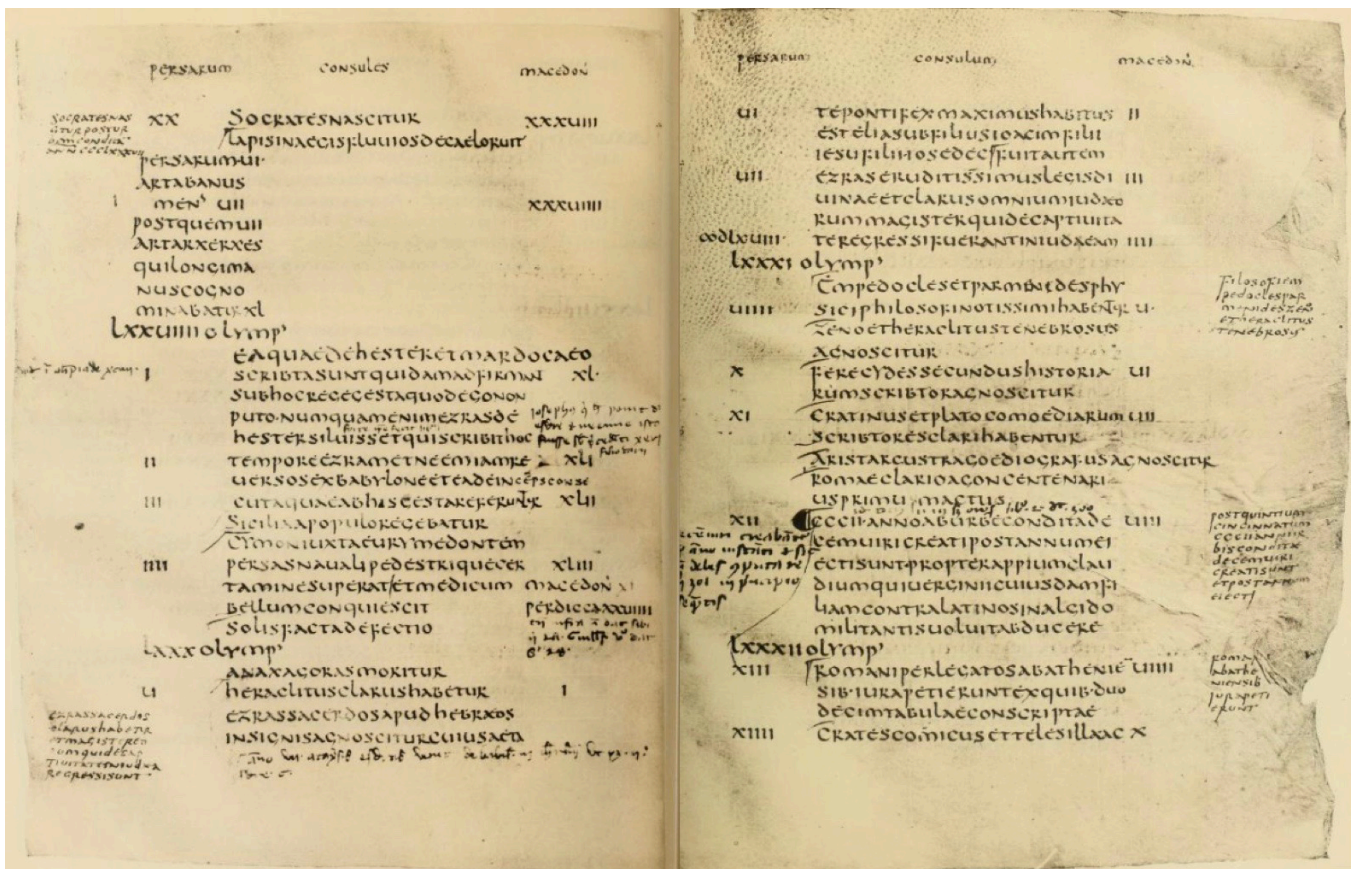 PERSARUM CONSULES MACEDON̄
SOCRATESNAS
XX SOCRATESNASCITUR XXXUIII
LAPISINAEGISFLUUIOSDECAELORUIT
PERSARUMUI·
ARTABANUS
I MEN̄ UII XXXUIIII
POSTQUEMUII
ARTARXERXES
QUILONGIMA
NUSCOGNO
MINABATURXL
LXXUIIII OLYMP'
EAQUAEDEHESTERETMARDOCAEO
I SCRIBTASUNTQUIDAMADFIRMAN XL·
SUBHOCREGEGESTAQUODEGONON
PUTO·NUMQUAMENIMEZRASDE
HESTERSILUISSETQUISCRIBITHOC
II TEMPOREEZRAMETNEEMIAMRE XLI
UERSOSEXBABYLONEETEADEINCEPSCONSE
III CUTAQUAEABHISGESTAREFERUNTUR XLII
SICILIAAPOPULOREGEBATUR
CYMONIUXTAEURYMEDONTEM
IIII PERSASNAUALIPEDESTRIQUECER XLIII
TAMINESUPERATETMEDICUM MACEDON̄
BELLUMCONQUIESCIT PERDICCAXXUIIII
SOLISFACTADEFECTIO
LXXX OLYMP'
ANAXAGORASMORITUR
UI HERACLITUSCLARUSHABETUR I
EZRASSACERDOSAPUDHEBRAEOS
INSIGNISAGNOSCITURCUIUSAETA
EZRASSACERDOS
CLARUSHABETUR
ETMAGISTREO
RUMQUIDECAP
TIUITATEINIUDAEA
REGRESSISUNT
PERSARUM CONSULUM MACEDON̄
UI TEPONTIFEXMAXIMUSHABITUS II
ESTELIASUBFILIUSIOACIMFILII
IESUFILIIIOSEDEC FUITAUTEM
UII EZRASERUDITISSIMUSLEGISDI III
UINAEETCLARUSOMNIUMIUDAEO
RUMMAGISTERQUIDECAPTIUITA
TEREGRESSIFUERANTINIUDAEAM IIII
LXXXI OLYMP'
EMPEDOCLESETPARMENIDESPHY
UIIII SICIPHILOSOFINOTISSIMIHABENTUR U·
ZENOETHERACLITUSTENEBROSUS
AGNOSCITUR
X FERECYDESSECUNDUSHISTORIA UI
RUMSCRIBTORAGNOSCITUR
XI CRATINUSETPLATOCOMOEDIARUM UII
SCRIBTORESCLARIHABENTUR
ARISTARCUSTRAGOEDIOGRAFUSAGNOSCITUR
ROMAECLARIOAGONCENTENARI
USPRIMUMACTUS
XII CCCIIANNOABURBECONDITADE UIII
CEMUIRICREATIPOSTANNUMEI
ECTISUNTPROPTERAPPIUMCLAU
DIUMQUIUERGINIICUIUSDAMFI
LIAMCONTRALATINOSINALGIDO
MILITANTISUOLUITABDUCERE
LXXXII OLYMP'
XIII ROMANIPERLEGATOSABATHENIEN UIIII
SIB·IURAPETIERUNTEXQUIB·DUO
DECIMTABULAECONSCRIPTAE
XIIII CRATESCOMICUSETTELESILLAAC X
FILOSOFIEM
PEDOCLESPAR
MENIDESZENO
ETHERACLITUS
TENEBROSUS
POSTQUINTIUM
CINCINNATUM
DECEMUIRI
CREATISUNT
ROMA
ABATHE
NIENSIB
IURAPETI
ERUNT